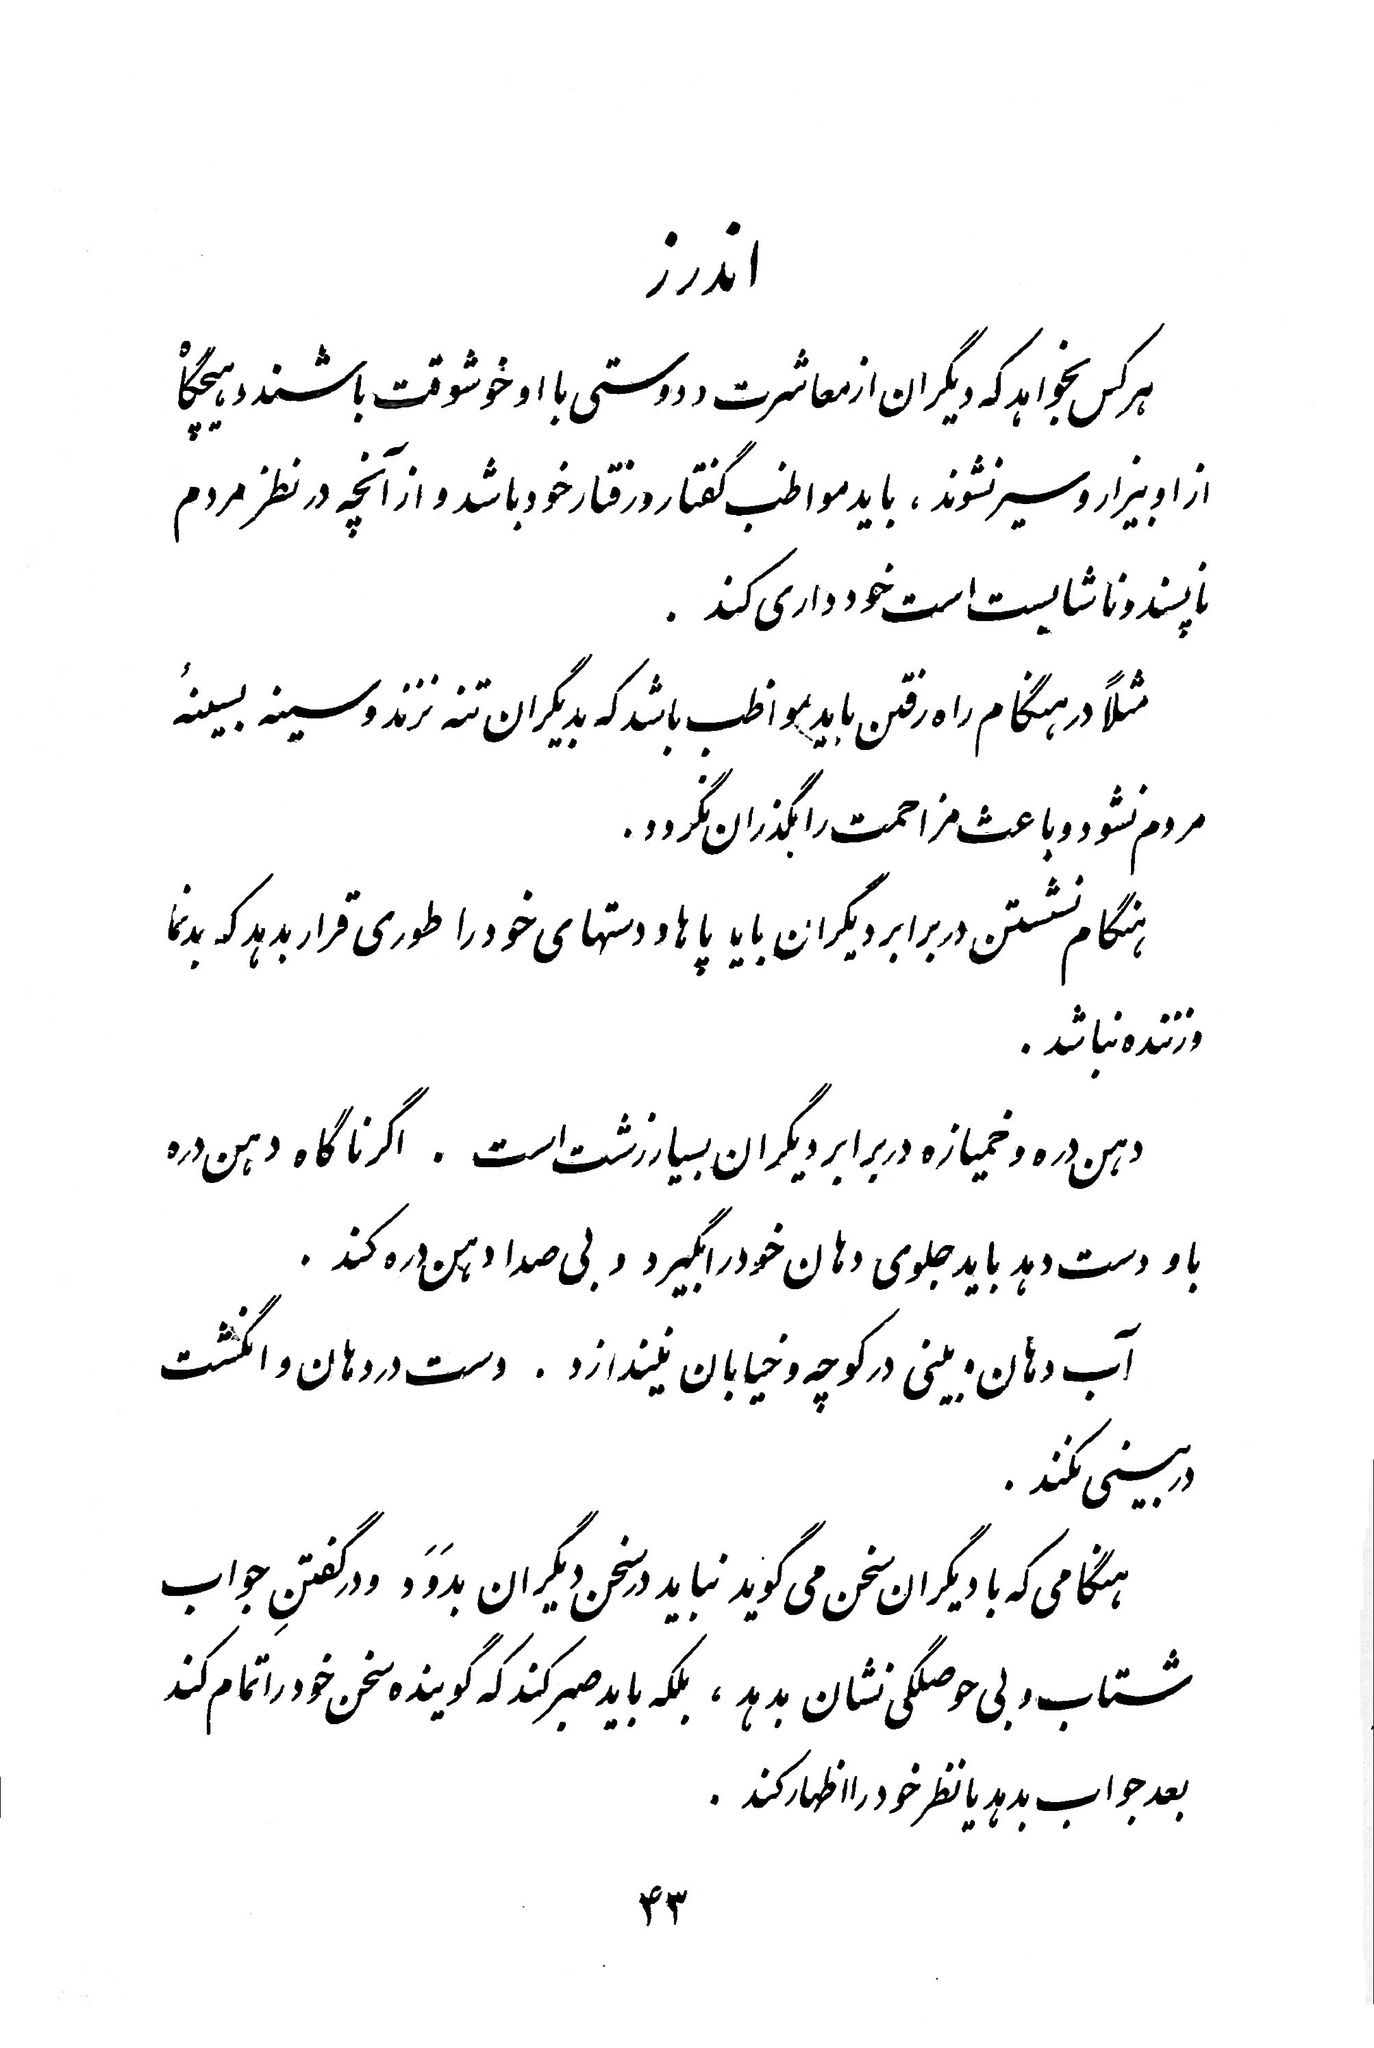 اندرز
هرکس بخواهد که دیگران از معاشرت و دوستی با او خوشوقت باشند و هیچگاه
از او بیزار و سیر نشوند ، باید مواظب گفتار و رفتار خود باشد و از آنچه در نظر مردم
ناپسند و ناشایست است خودداری کند .
مثلاً در هنگام راه رفتن باید مواظب باشد که بدیگران تنه نزند و سینه بسینهٔ
مردم نشود و باعث مزاحمت راهگذران نگردد .
هنگام نشستن در برابر دیگران باید پاها و دستهای خود را طوری قرار بدهد که بدنما
و زننده نباشد .
دهن دره و خمیازه در برابر دیگران بسیار زشت است . اگر ناگاه دهن دره
باو دست دهد باید جلوی دهان خود را بگیرد و بی صدا دهن دره کند .
آب دهان و بینی در کوچه و خیابان نیندازد . دست در دهان و انگشت
در بینی نکند .
هنگامی که با دیگران سخن می گوید نباید در سخن دیگران بدَوَد و در گفتنِ جواب
شتاب و بی حوصلگی نشان بدهد ، بلکه باید صبر کند که گوینده سخن خود را تمام کند
بعد جواب بدهد یا نظر خود را اظهار کند .
۴۳